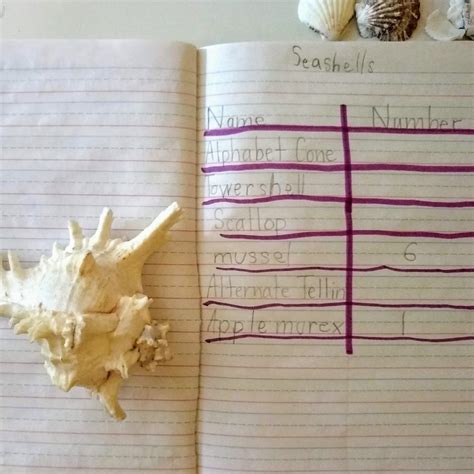 Seashells
Name Number
Alphabet Cone
Towershell
Scallop
mussel 6
Alternate Tellin
Apple murex 1